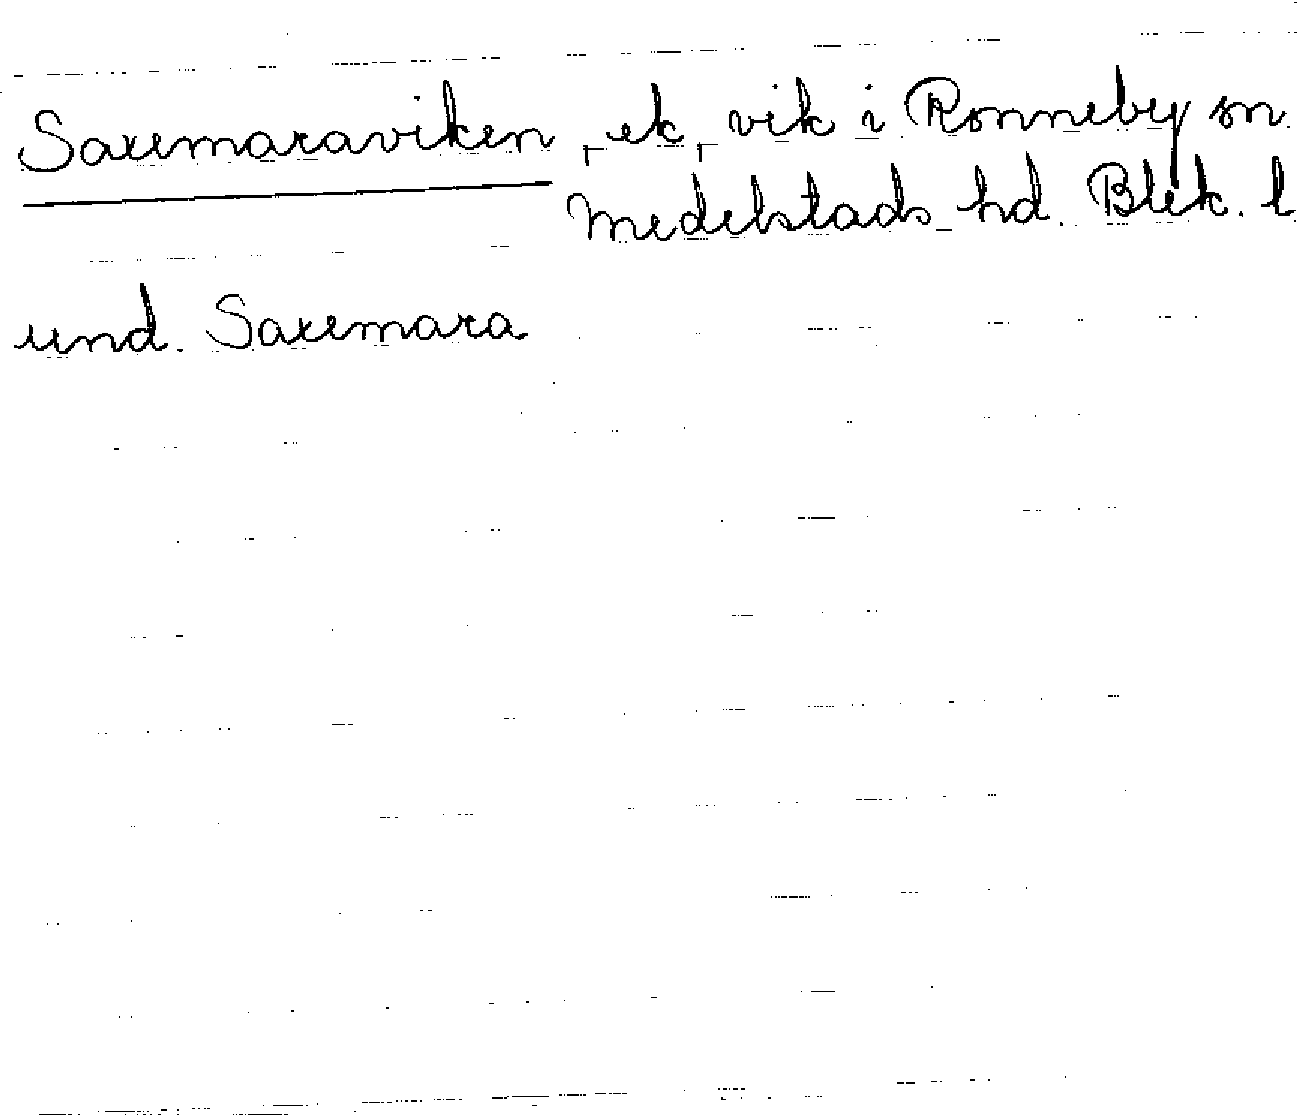 Saxemaraviken, ek, vik i Ronneby sn
Medelstads hd. Blek. l
und. Saxemara